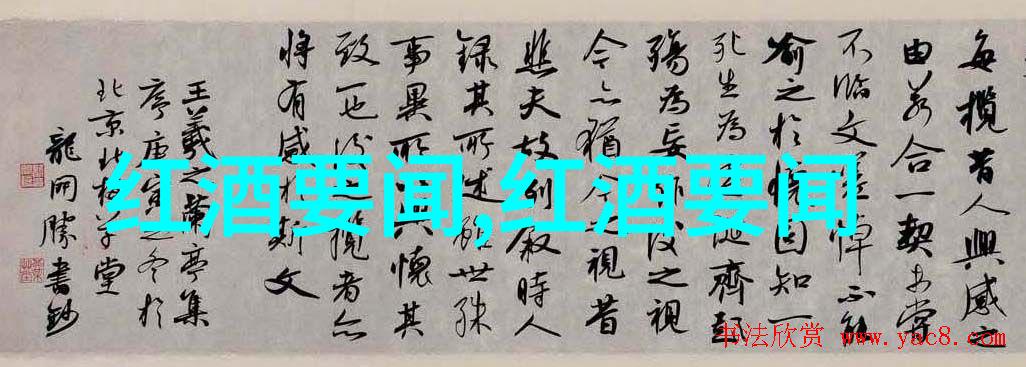 每攬昔人興感之
由若合一契未嘗
不臨文嗟悼不能
喻之於懷固知一
死生為誕齊彭
殤為妄作後之視
今亦猶今之視昔
悲夫故列敘時人
錄其所述雖世殊
事異所以興懷其
致一也後之攬者亦
將有感於斯文
王羲之蘭亭集
序庚寅之冬於
北京北堂
龍開勝書鈔
红酒要闻,红酒要闻
书法欣赏 www.yac8.com